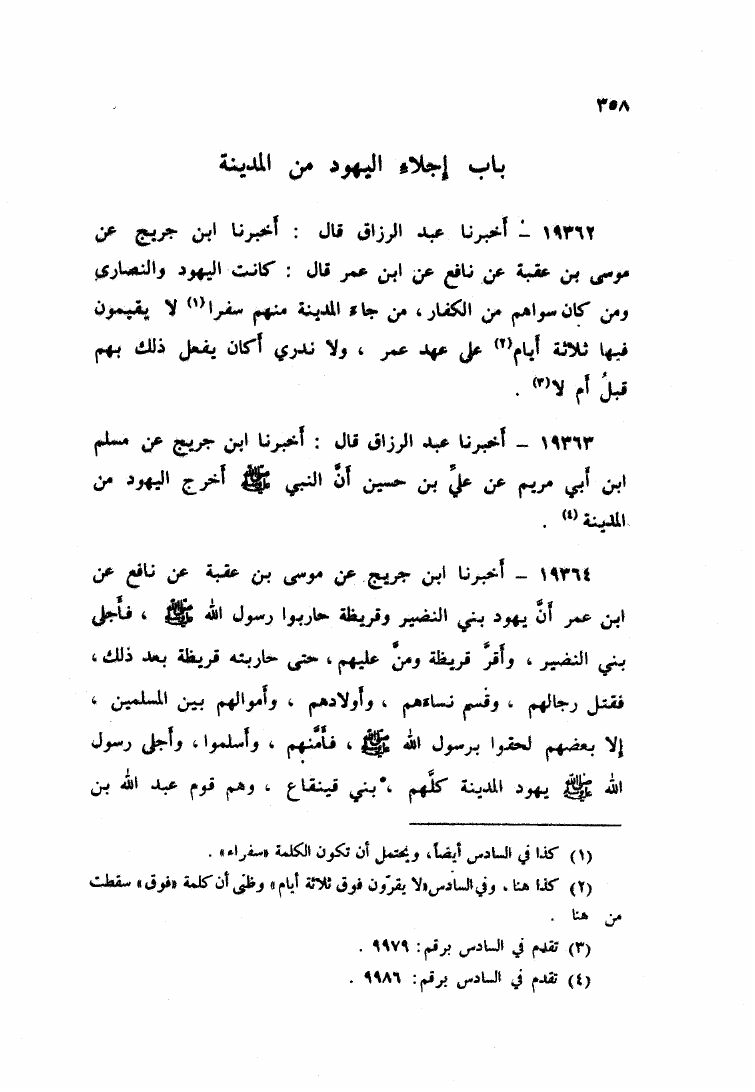 ٣٥٨
باب إجلاء اليهود من المدينة
١٩٣٦٢ – أخبرنا عبد الرزاق قال : أخبرنا ابن جريج عن
موسى بن عقبة عن نافع عن ابن عمر قال : كانت اليهود والنصارى
ومن كان سواهم من الكفار ، من جاء المدينة منهم سفرا(١) لا يقيمون
فيها ثلاثة أيام(٢) على عهد عمر ، ولا ندري أكان يفعل ذلك بهم
قبلُ أم لا(٣) .
١٩٣٦٣ – أخبرنا عبد الرزاق قال : أخبرنا ابن جريج عن مسلم
ابن أبي مريم عن عليِّ بن حسين أنَّ النبي ﷺ أخرج اليهود من
المدينة(٤) .
١٩٣٦٤ – أخبرنا ابن جريج عن موسى بن عقبة عن نافع عن
ابن عمر أنَّ يهود بني النضير وقريظة حاربوا رسول الله ﷺ ، فأجلى
بني النضير ، وأقرَّ قريظة ومنَّ عليهم ، حتى حاربته قريظة بعد ذلك ،
فقتل رجالهم ، وقسم نساءهم ، وأولادهم ، وأموالهم بين المسلمين ،
إلا بعضهم لحقوا برسول الله ﷺ ، فأمَّنهم ، وأسلموا ، وأجلى رسول
الله ﷺ يهود المدينة كلَّهم ، بني قينقاع ، وهم قوم عبد الله بن
(١) كذا في السادس أيضاً، ويحتمل أن تكون الكلمة «سفراء» .
(٢) كذا هنا ، وفي السادس «لا يقرّون فوق ثلاثة أيام» وظنّى أن كلمة «فوق» سقطت
من هنا .
(٣) تقدم في السادس برقم : ٩٩٧٩ .
(٤) تقدم في السادس برقم : ٩٩٨٦ .